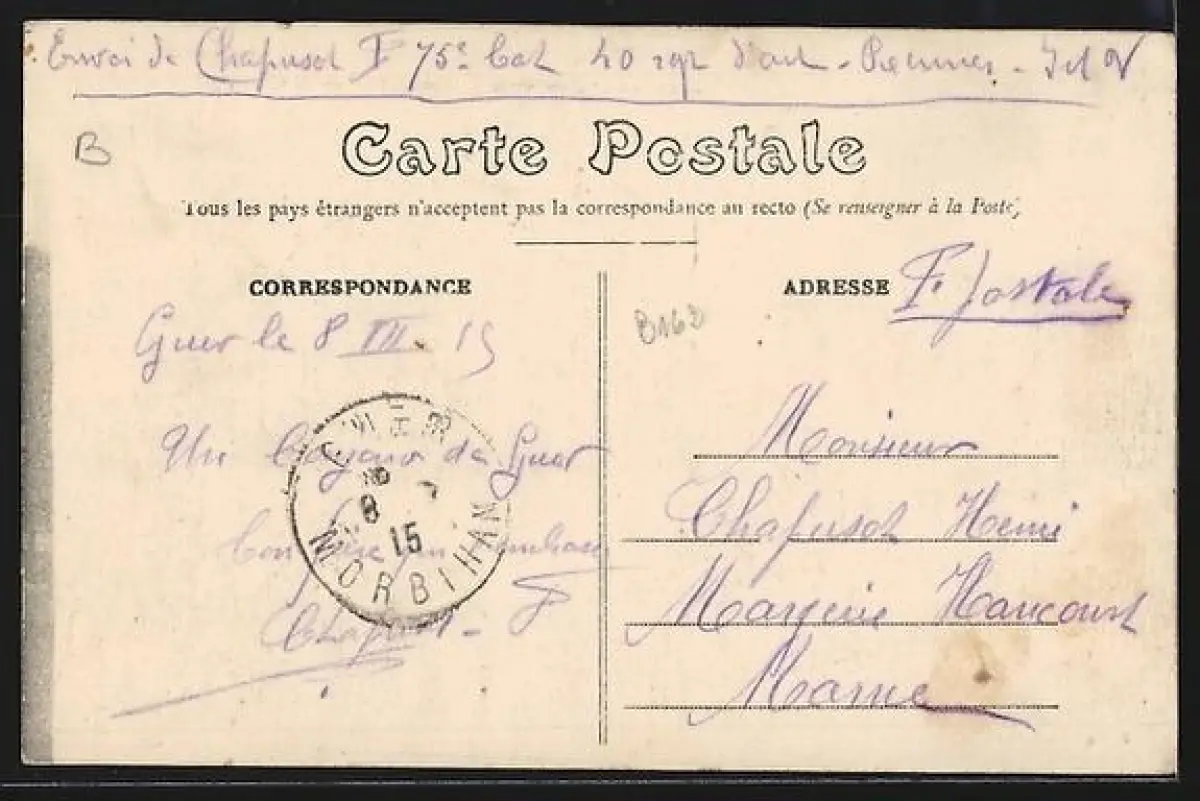 Envoi de Chapusot F 75e bat 40 rgt d'art - Rennes -
B
Carte Postale
Tous les pays étrangers n'acceptent pas la correspondance au recto (Se renseigner à la Poste)
CORRESPONDANCE
Guer le 8 VII. 15
Un bonjour de Guer
Ton
Chapusot - F
GUER
8 7
15
MORBIHAN
ADRESSE
F. Postale
B162
Monsieur
Chapusot Henri
Margerie Hancourt
Marne